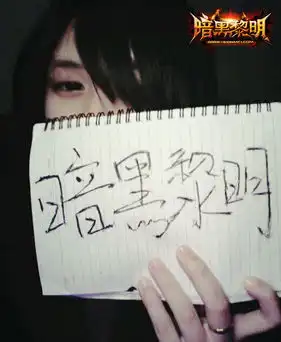 暗黑黎明
暗黑黎明